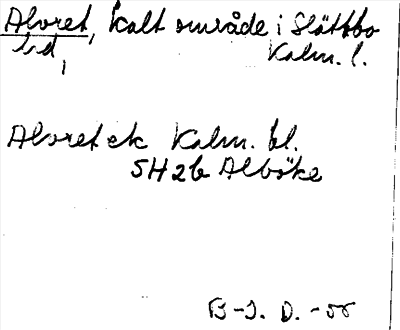 Alvret, kalt område i Slättbo
hd, Kalm. l.
Alvret ek Kalm. bl.
5H2b Alböke
B-I. D. -55